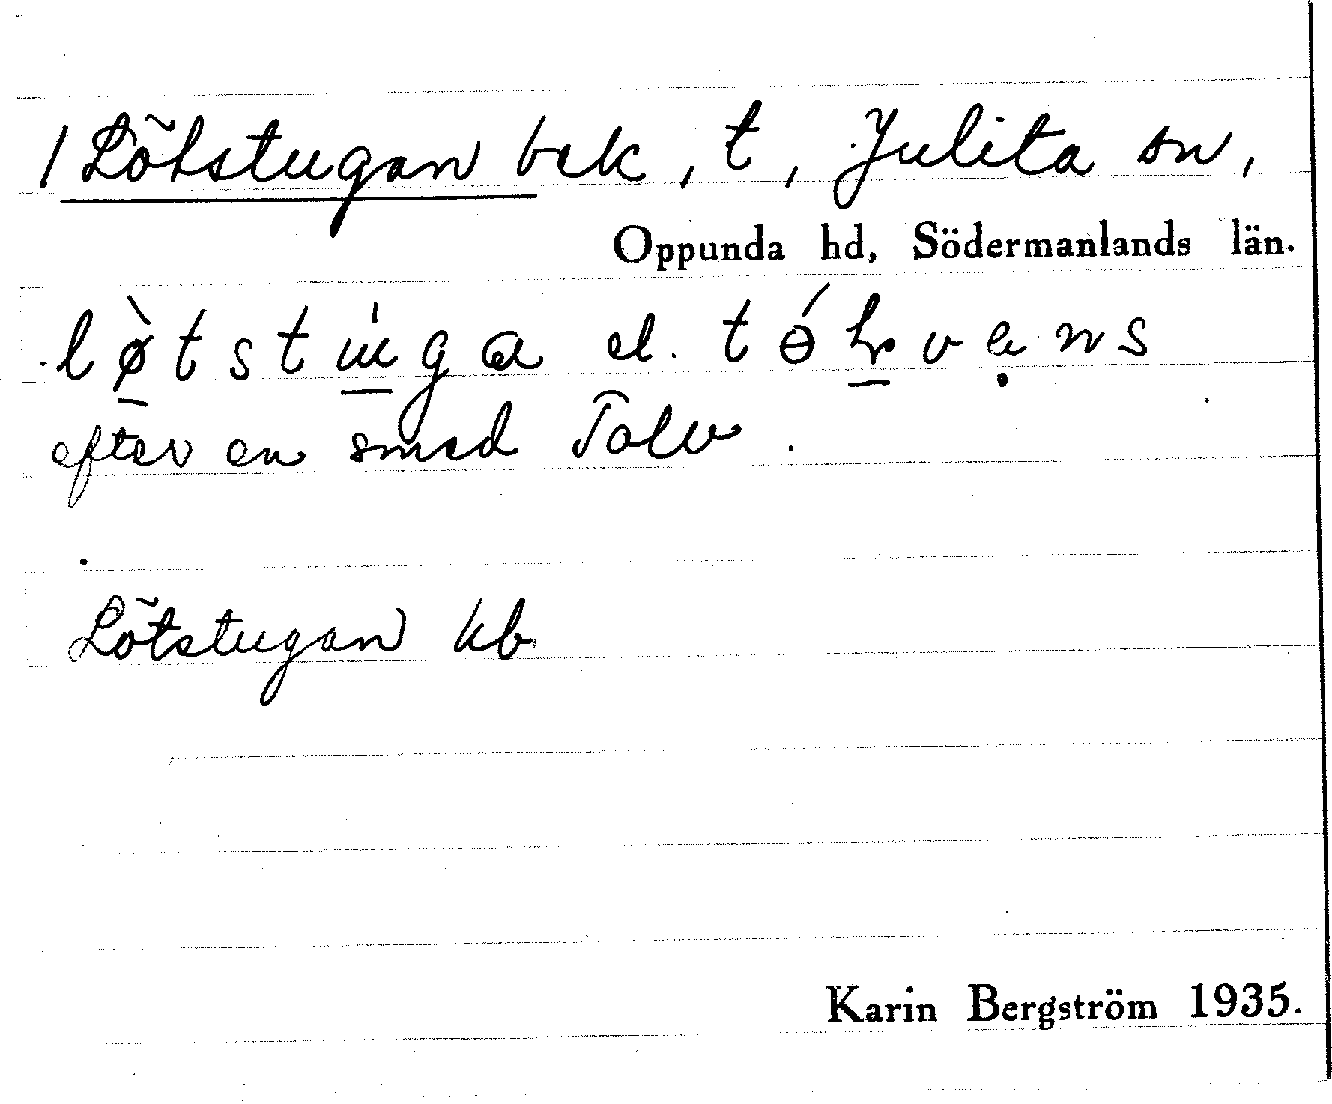 1 Lötstugan bek, t, Julita sn,
Oppunda hd, Södermanlands län.
lø̀tstu̇ga el. tɵ́lvans
efter en smed Tolv.
Lötstugan kb
Karin Bergström 1935.